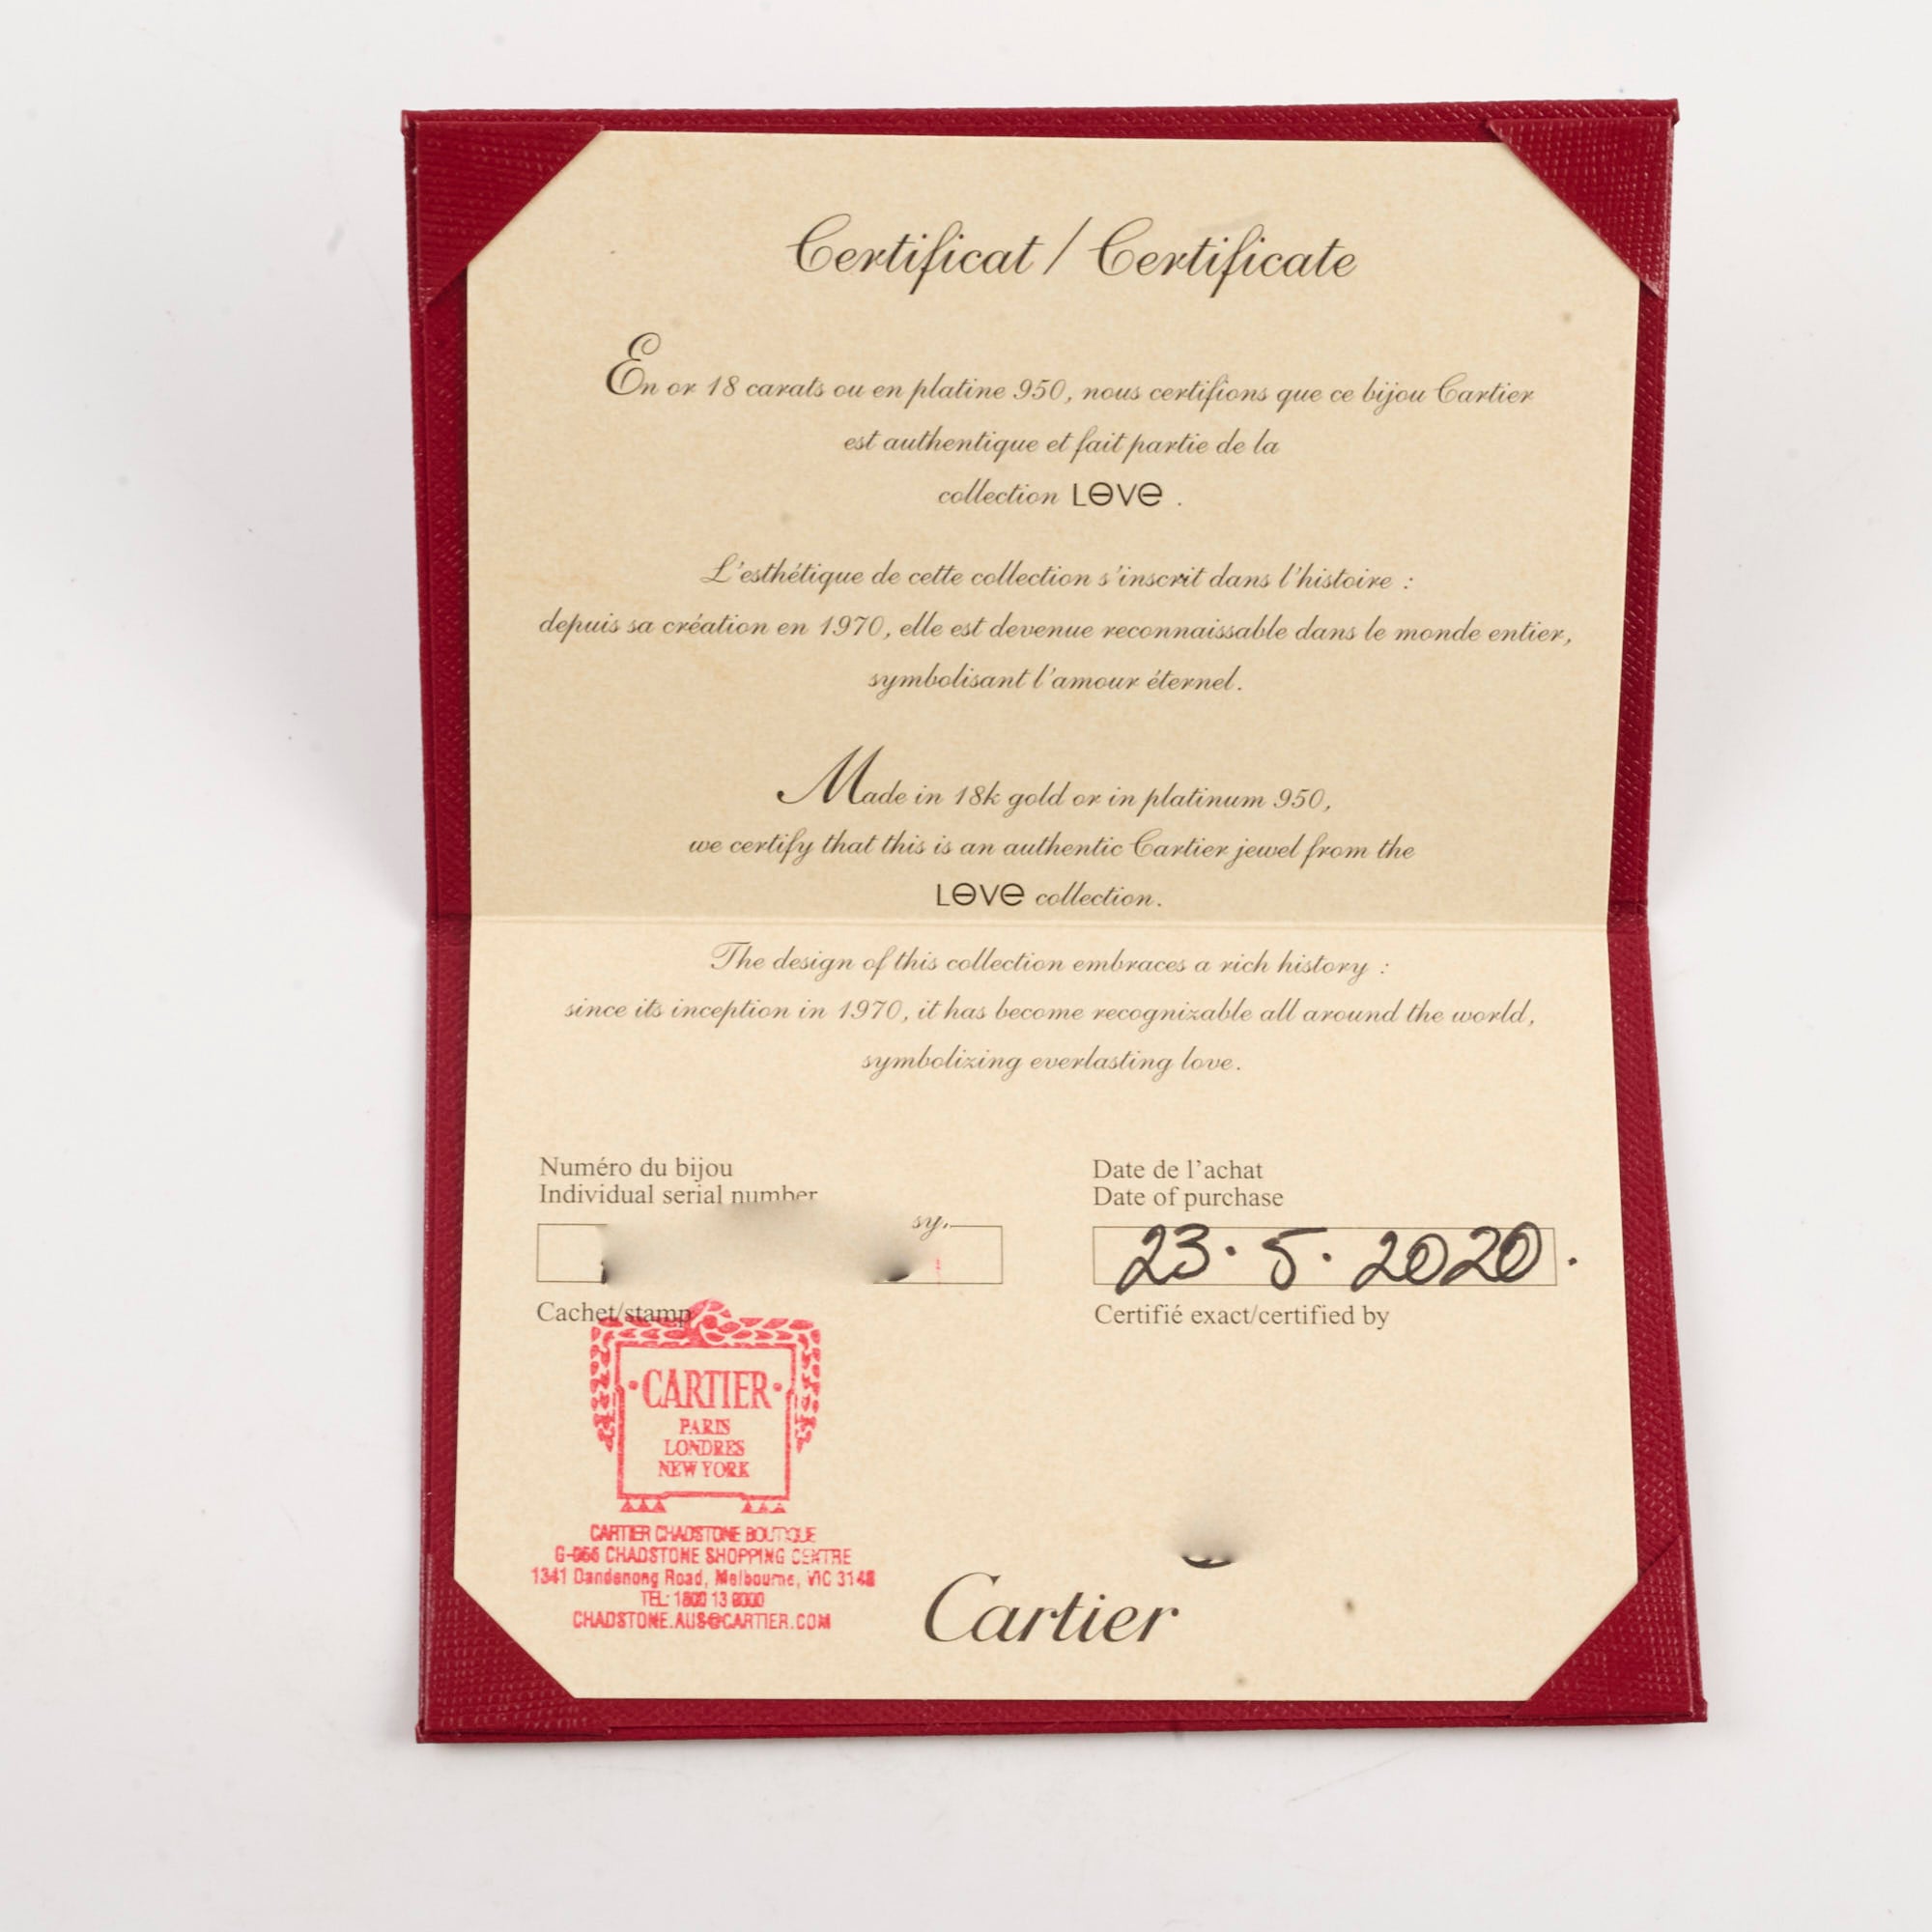 Certificat / Certificate
En or 18 carats ou en platine 950, nous certifions que ce bijou Cartier
est authentique et fait partie de la
collection LOVE .
L'esthétique de cette collection s'inscrit dans l'histoire :
depuis sa création en 1970, elle est devenue reconnaissable dans le monde entier,
symbolisant l'amour éternel.
Made in 18k gold or in platinum 950,
we certify that this is an authentic Cartier jewel from the
LOVE collection.
The design of this collection embraces a rich history :
since its inception in 1970, it has become recognizable all around the world,
symbolizing everlasting love.
Numéro du bijou
Individual serial number
sy.
Date de l'achat
Date of purchase
23.5.2020.
Cachet/stamp
Certifié exact/certified by
CARTIER
PARIS
LONDRES
NEW YORK
CARTIER CHADSTONE BOUTIQUE
CHADSTONE SHOPPING CENTRE
1341 Dandenong Road, Melbourne, VIC 3148
TEL: 13
CHADSTONE.AUS@CARTIER.COM
Cartier